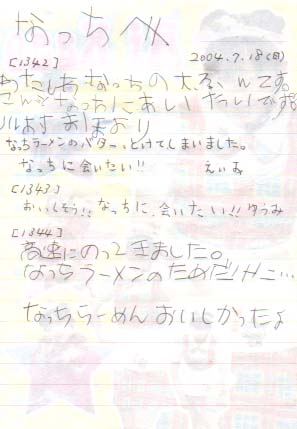 なっちへ
[1342] 2004.7.18(日)
わたしもなっちの大ふぁんです。
なっちにあいたいです
なっちラーメンのバター、とけてしまいました。
なっちに会いたい!! えいみ
[1343]
おいしそう!! なっちに、会いたい!! ゆうみ
[1344]
高速にのってきました。
なっちラーメンのためだけに…
なっちらーめん おいしかったよ